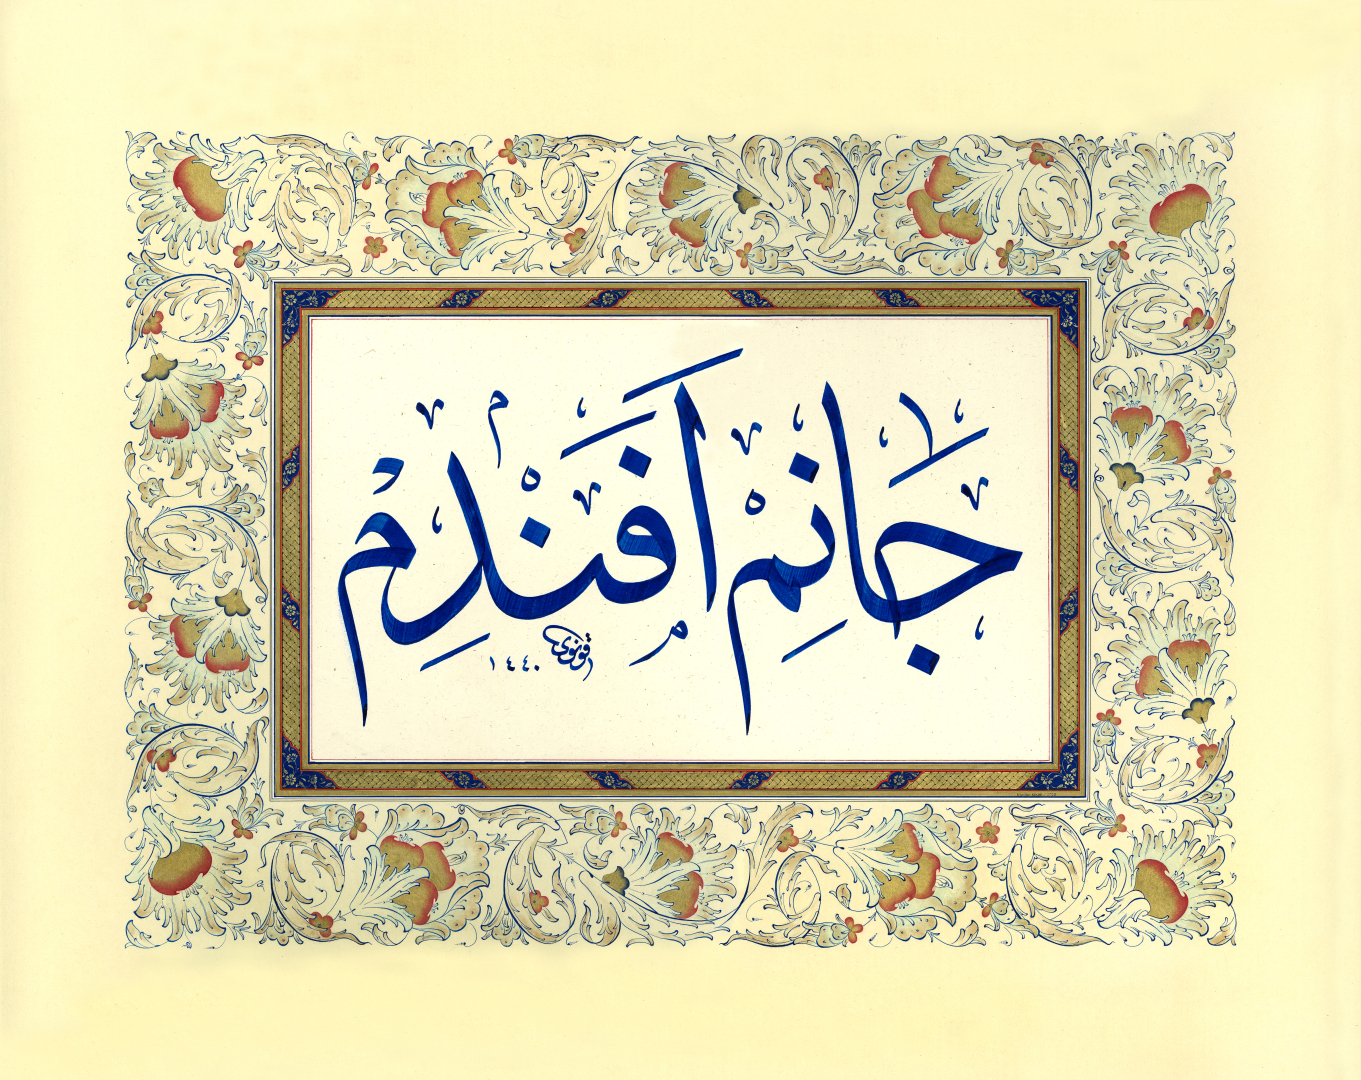 جانم افندم
قونوی
١٤٤٠